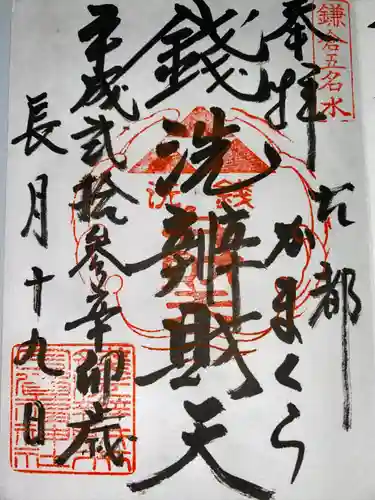 鎌倉五名水
奉拝 古都
かまくら
銭洗辨財天
平成弐拾参年辛卯歳
長月十九日
銭洗